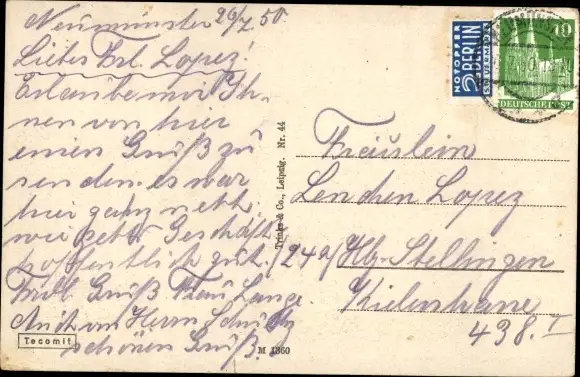 Neumünster 26/7 50
Liebes Frl. Lopez!
Erlaube mir Ih-
nen von hier
einen Gruß zu
senden. es war
hier ganz nett.
wie geht Geschäft
hoffentlich gut.
Frdl. Gruß Frau Lange
Auch an Herrn Schultz
schönen Gruß.
Tecomit
Trinks & Co., Leipzig. Nr. 44
M 1360
NOTOPFER
2 BERLIN
STEUERMARKE
10
DEUTSCHE POST
Fräulein
Lenchen Lopez
(24a) Hbg-Stellingen
438. I